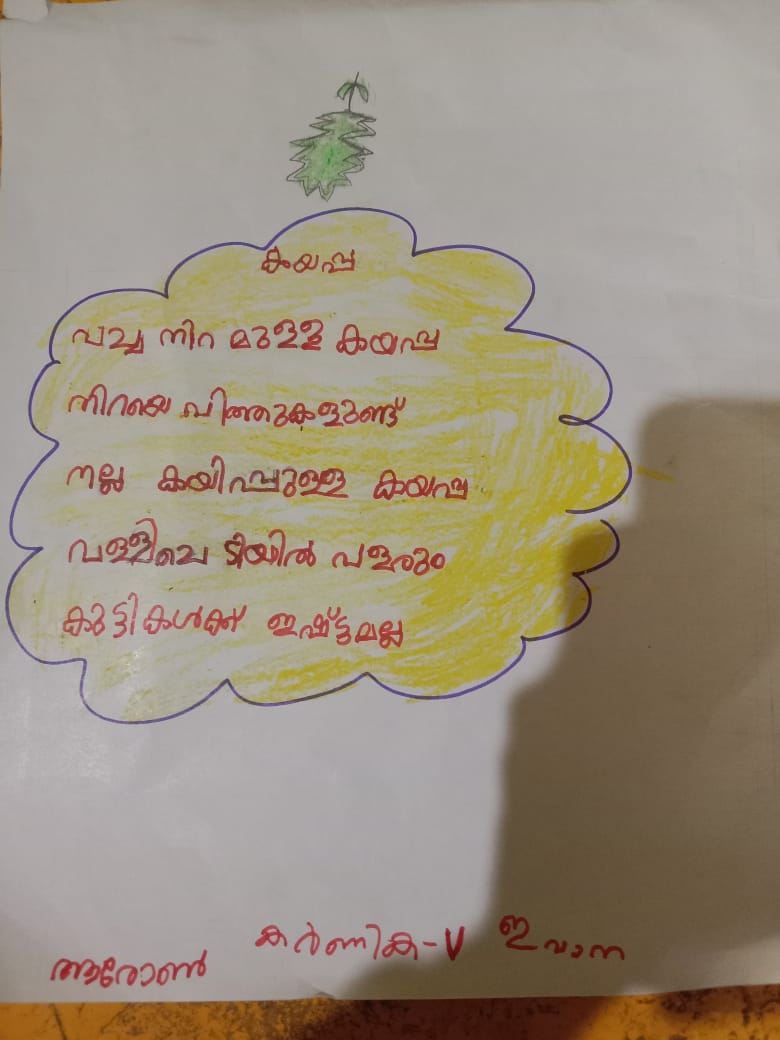 കയപ്പ
പച്ച നിറ മുള്ള കയപ്പ
നിറയെ വിത്തുകളുണ്ട്
നല്ല കയിപ്പുള്ള കയപ്പ
വള്ളിചെ ടിയിൽ വളരും
കുട്ടികൾക്ക് ഇഷ്ട്ടമല്ല
കർണിക-V ഇവാന
ആരോൺ